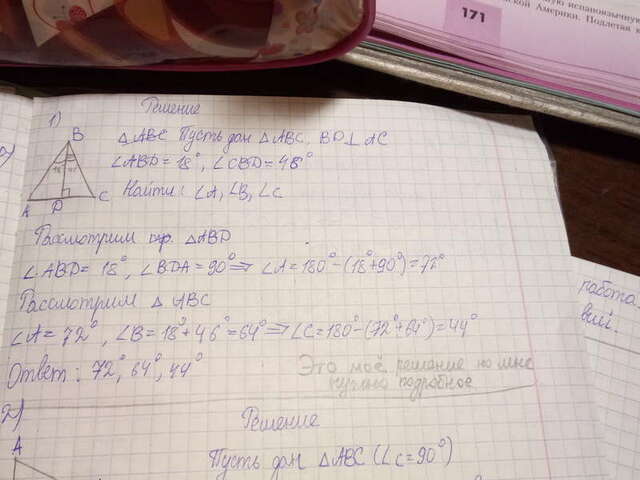 171
ную испаноязычную
ской Америки. Подлетая к
1) Решение
△ABC Пусть дан △ABC, BD⊥AC
∠ABD = 18°, ∠CBD = 46°
Найти: ∠A, ∠B, ∠C
B
18° 46°
A D C
Рассмотрим △ABD
∠ABD = 18°, ∠BDA = 90° ⇒ ∠A = 180° - (18° + 90°) = 72°
Рассмотрим △ ABC
∠A = 72°, ∠B = 18° + 46° = 64° ⇒ ∠C = 180° - (72° + 64°) = 44°
Ответ: 72°, 64°, 44°
Это моё решение но мне
нужно подробное
работа
2) Решение
A
Пусть дан △ABC (∠C = 90°)